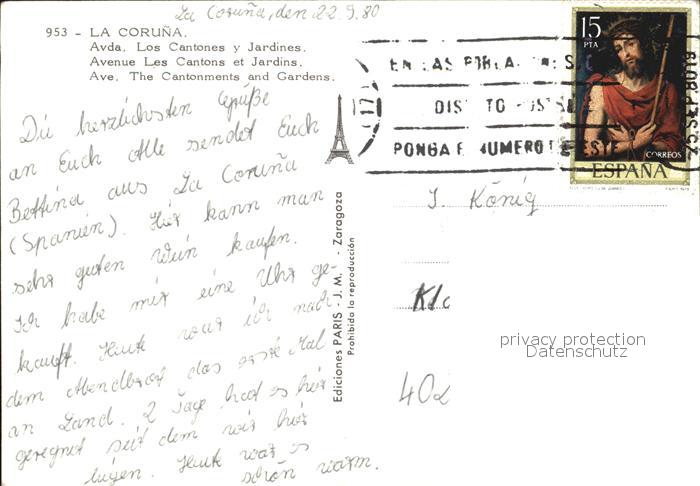 La Coruña, den 22.9.80
953 - LA CORUÑA.
Avda. Los Cantones y Jardines.
Avenue Les Cantons et Jardins.
Ave. The Cantonments and Gardens.
Die herzlichsten Grüße
an Euch Alle sendet Euch
Bettina aus La Coruña
(Spanien). Hier kann man
sehr guten Wein kaufen.
Ich habe mir eine Uhr ge-
kauft. Heute war ich nach
dem Abendbrot das erste Mal
an Land. 2 Tage hat es hier
geregnet seit dem wir hier
liegen. Heute war es
schön warm.
Ediciones PARIS - J. M. - Zaragoza
Prohibida la reproducción
15
PTA
CORREOS
ESPAÑA
EN LAS
DIS TO
PONGA NUMERO ESTE
17
J. König
Kl
402
privacy protection
Datenschutz